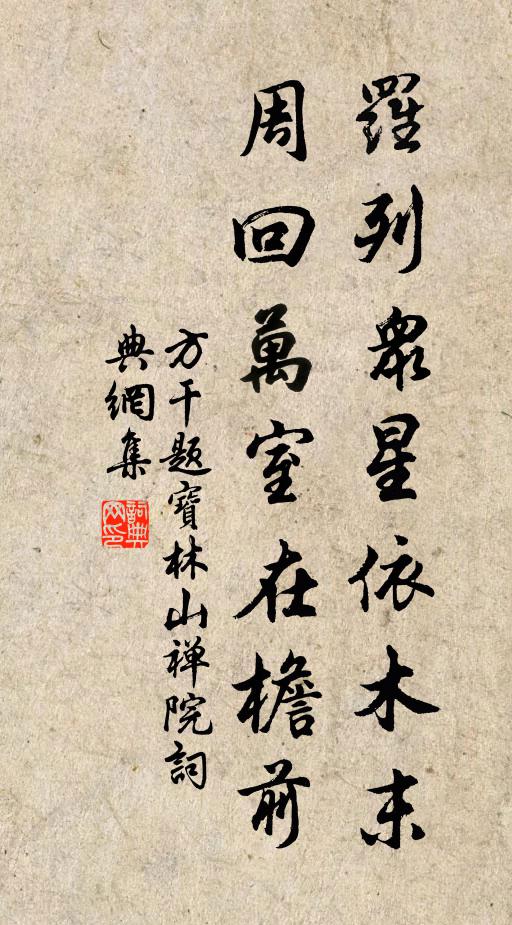 羅列眾星依木末
周回萬室在檐前
方干題寶林山禅院詞
典網集
詞典
网印